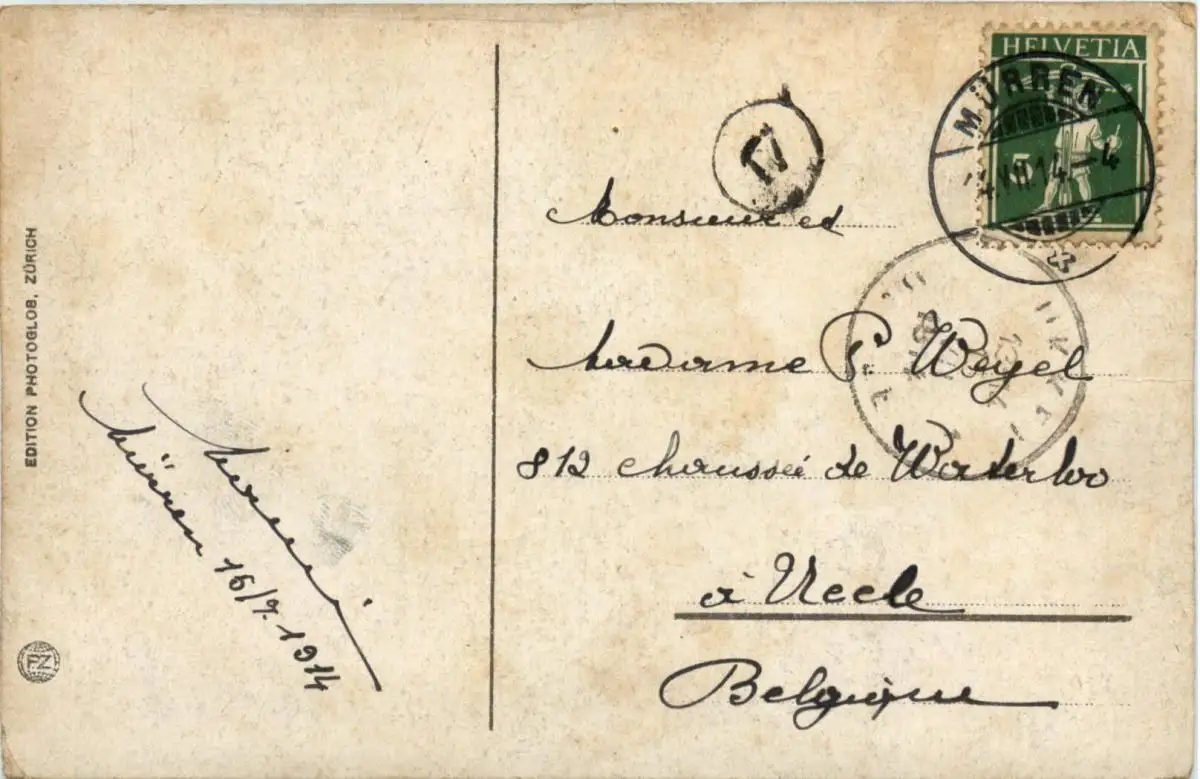 EDITION PHOTOGLOB, ZÜRICH
PZ
Mürren 16/7. 1914
HELVETIA
5
MÜRREN
VII 14 - 4
IV
Monsieur et
Madame P. Weyel
812 chaussée de Waterloo
à Uccle
Belgique